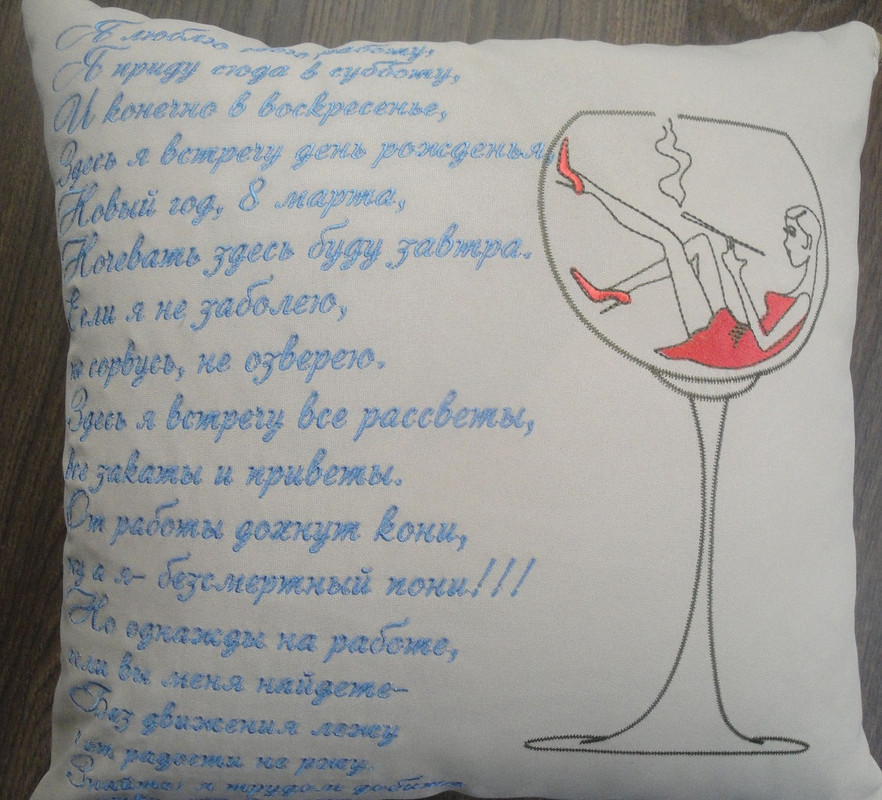 Я люблю свою работу,
Я приду сюда в субботу,
И конечно в воскресенье,
Здесь я встречу день рожденья,
Новый год, 8 марта,
Ночевать здесь буду завтра.
Если я не заболею,
не сорвусь, не озверею.
Здесь я встречу все рассветы,
все закаты и приветы.
От работы дохнут кони,
ну а я- безсмертный пони!!!
Но однажды на работе,
или вы меня найдете-
Без движения лежу
от радости не ржу.
Знайте: я трудом добит